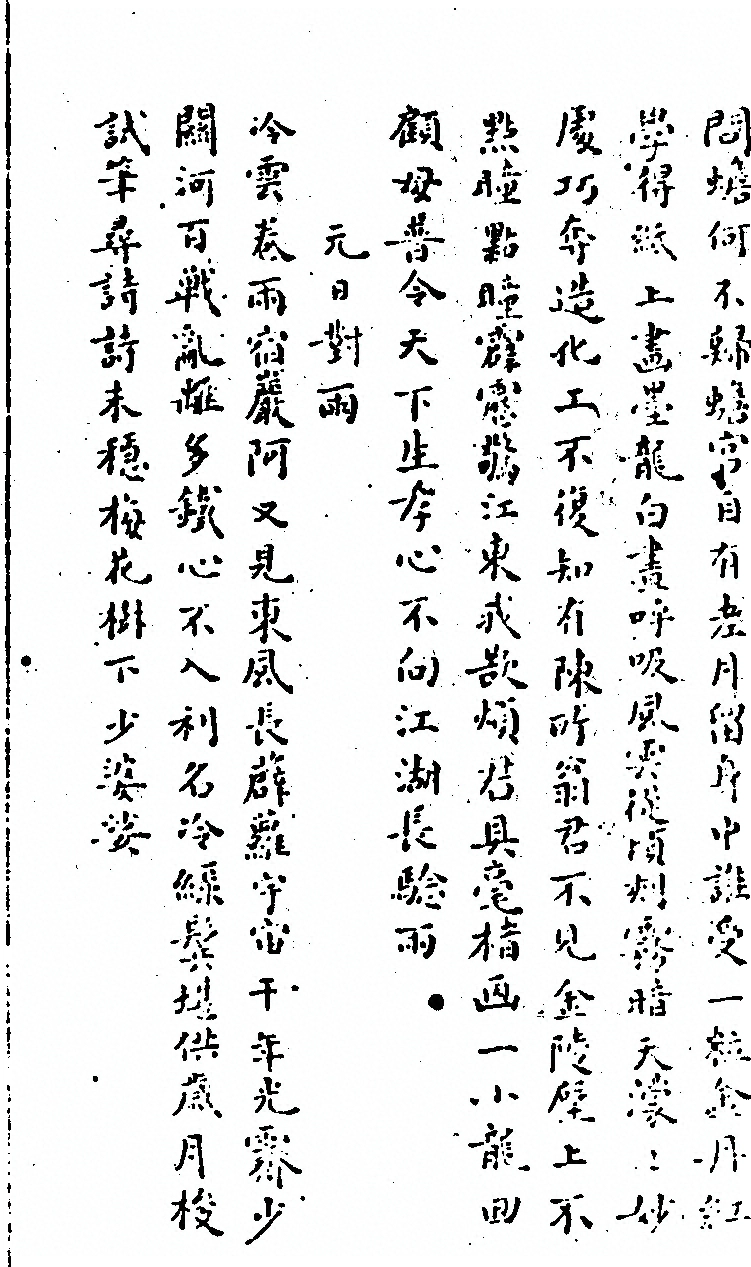 問蟾何不歸蟾宮自有老月留身中誰受一粒金丹紅
學得紙上畫墨龍白晝呼吸風雲從頃刻霧暗天濛〻妙
處巧奪造化工不復知有陳所翁君不見金陵壁上不
點瞳點瞳霹靂驚江東我欲煩君具毫楮画一小龍回
顧母普令天下生孝心不向江湖長騐雨
元日對雨
冷雲巻雨宿巖阿又見東風長薜蘿宇宙千年光霽少
關河百戰亂離多鐵心不入利名冷綠鬢堪供歲月梭
試筆尋詩詩未穩梅花樹下少婆娑